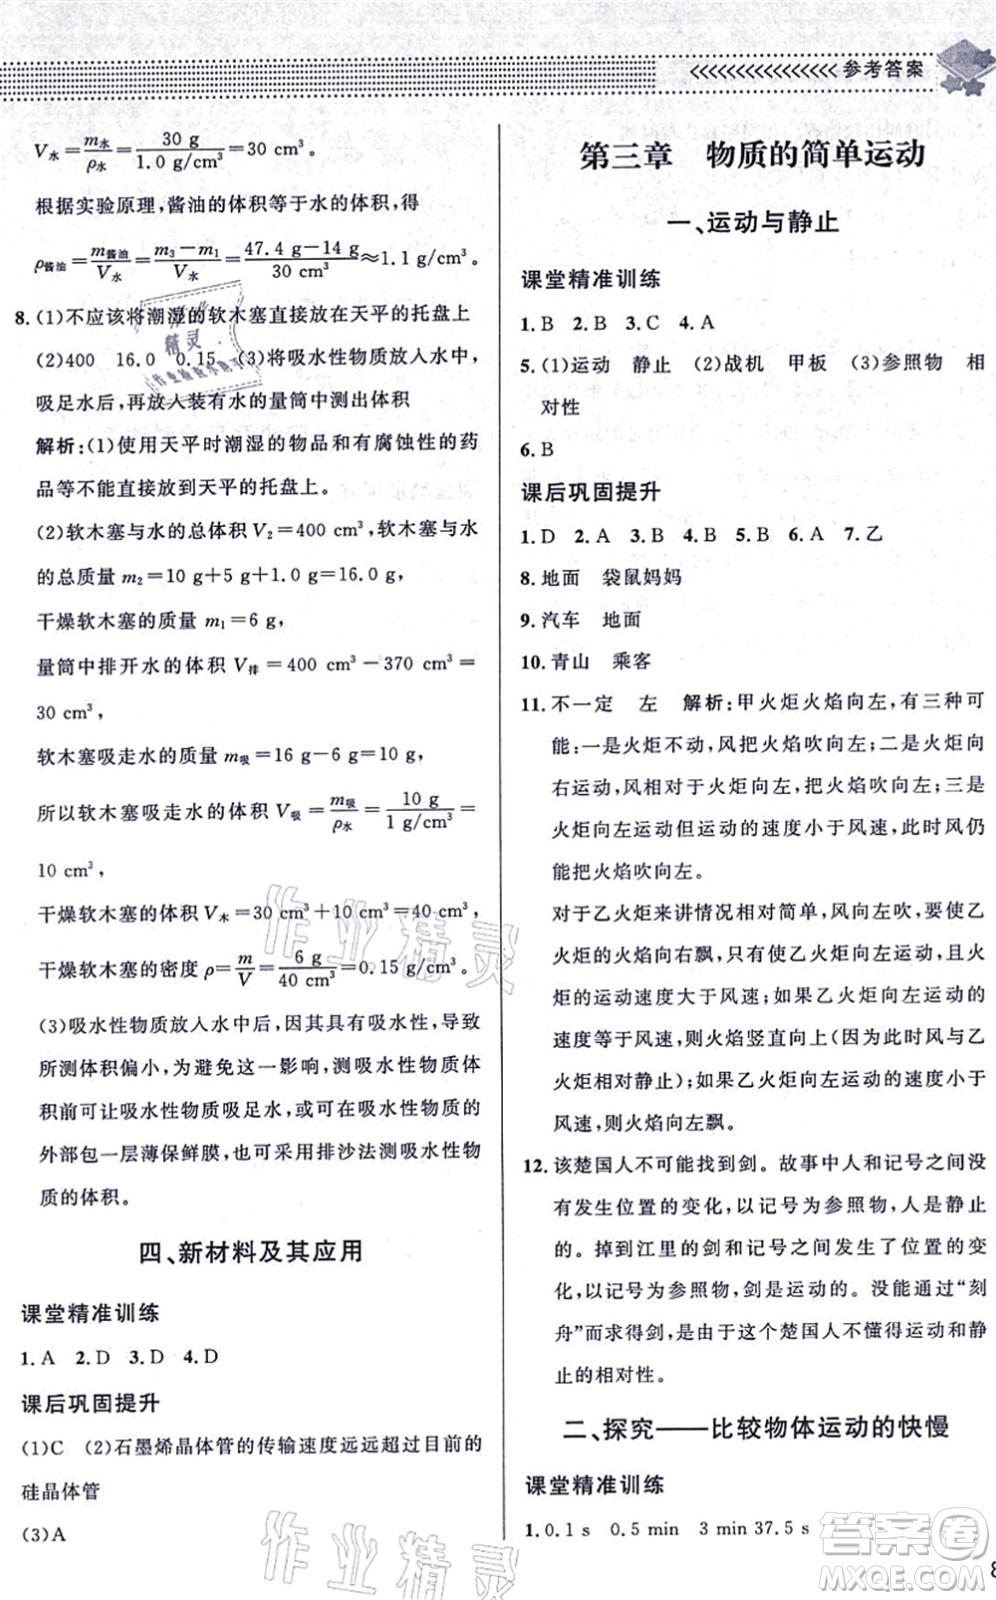 参考答案
V水=m水/ρ水=30 g/1.0 g/cm³=30 cm³。
根据实验原理,酱油的体积等于水的体积,得
ρ酱油=m酱油/V水=(m₃-m₁)/V水=(47.4 g-14 g)/30 cm³≈1.1 g/cm³。
8.(1)不应该将潮湿的软木塞直接放在天平的托盘上
(2)400 16.0 0.15 (3)将吸水性物质放入水中,
吸足水后,再放人装有水的量筒中测出体积
解析:(1)使用天平时潮湿的物品和有腐蚀性的药
品等不能直接放到天平的托盘上。
(2)软木塞与水的总体积 V₂=400 cm³,软木塞与水
的总质量 m₂=10 g+5 g+1.0 g=16.0 g,
干燥软木塞的质量 m₁=6 g,
量筒中排开水的体积 V排=400 cm³-370 cm³=
30 cm³,
软木塞吸走水的质量 m吸=16 g-6 g=10 g,
所以软木塞吸走水的体积 V吸=m吸/ρ水=10 g/1 g/cm³=
10 cm³,
干燥软木塞的体积 V木=30 cm³+10 cm³=40 cm³,
干燥软木塞的密度 ρ=m/V=6 g/40 cm³=0.15 g/cm³。
(3)吸水性物质放人水中后,因其有吸水性,导致
所测体积偏小,为避免这一影响,测吸水性物质体
积前可让吸水性物质吸足水,或在吸水性物质的
外部包一层薄保鲜膜,也可采用排沙法测吸水性物
质的体积。
四、新材料及其应用
课堂精准训练
1.A 2.D 3.D 4.D
课后巩固提升
(1)C (2)石墨烯晶体管的传输速度远远超过目前的
硅晶体管
(3)A
第三章 物质的简单运动
一、运动与静止
课堂精准训练
1.B 2.B 3.C 4.A
5.(1)运动 静止 (2)战机 甲板 (3)参照物 相
对性
6.B
课后巩固提升
1.D 2.A 3.B 4.B 5.A 6.A 7.乙
8.地面 袋鼠妈妈
9.汽车 地面
10.青山 乘客
11.不一定 左 解析:甲火炬火焰向左,有三种可
能:一是火炬不动,风把火焰吹向左;二是火炬向
右运动,风相对于火炬向左,把火焰吹向左;三是
火炬向左运动但运动的速度小于风速,此时风仍
能把火焰吹向左。
对于乙火炬来讲情况相对简单,风向左吹,要使乙
火炬的火焰向右飘,只有乙火炬向左运动,且火
炬的运动速度大于风速;如果乙火炬向左运动的
速度等于风速,则火焰竖直向上(因为此时风与乙
火炬相对静止);如果乙火炬向左运动的速度小于
风速,则火焰向左飘。
12.该楚国人不可能找到剑。故事中人和记号之间没
有发生位置的变化,以记号为参照物,人是静止
的。掉到江里的剑和记号之间发生了位置的变
化,以记号为参照物,剑是运动的。没能通过“刻
舟”而求得剑,是由于这个楚国人不懂得运动和静止
的相对性。
二、探究——比较物体运动的快慢
课堂精准训练
1.0.1 s 0.5 min 3 min 37.5 s
作业精灵
作业精灵
答案圈
MXQE.COM
8